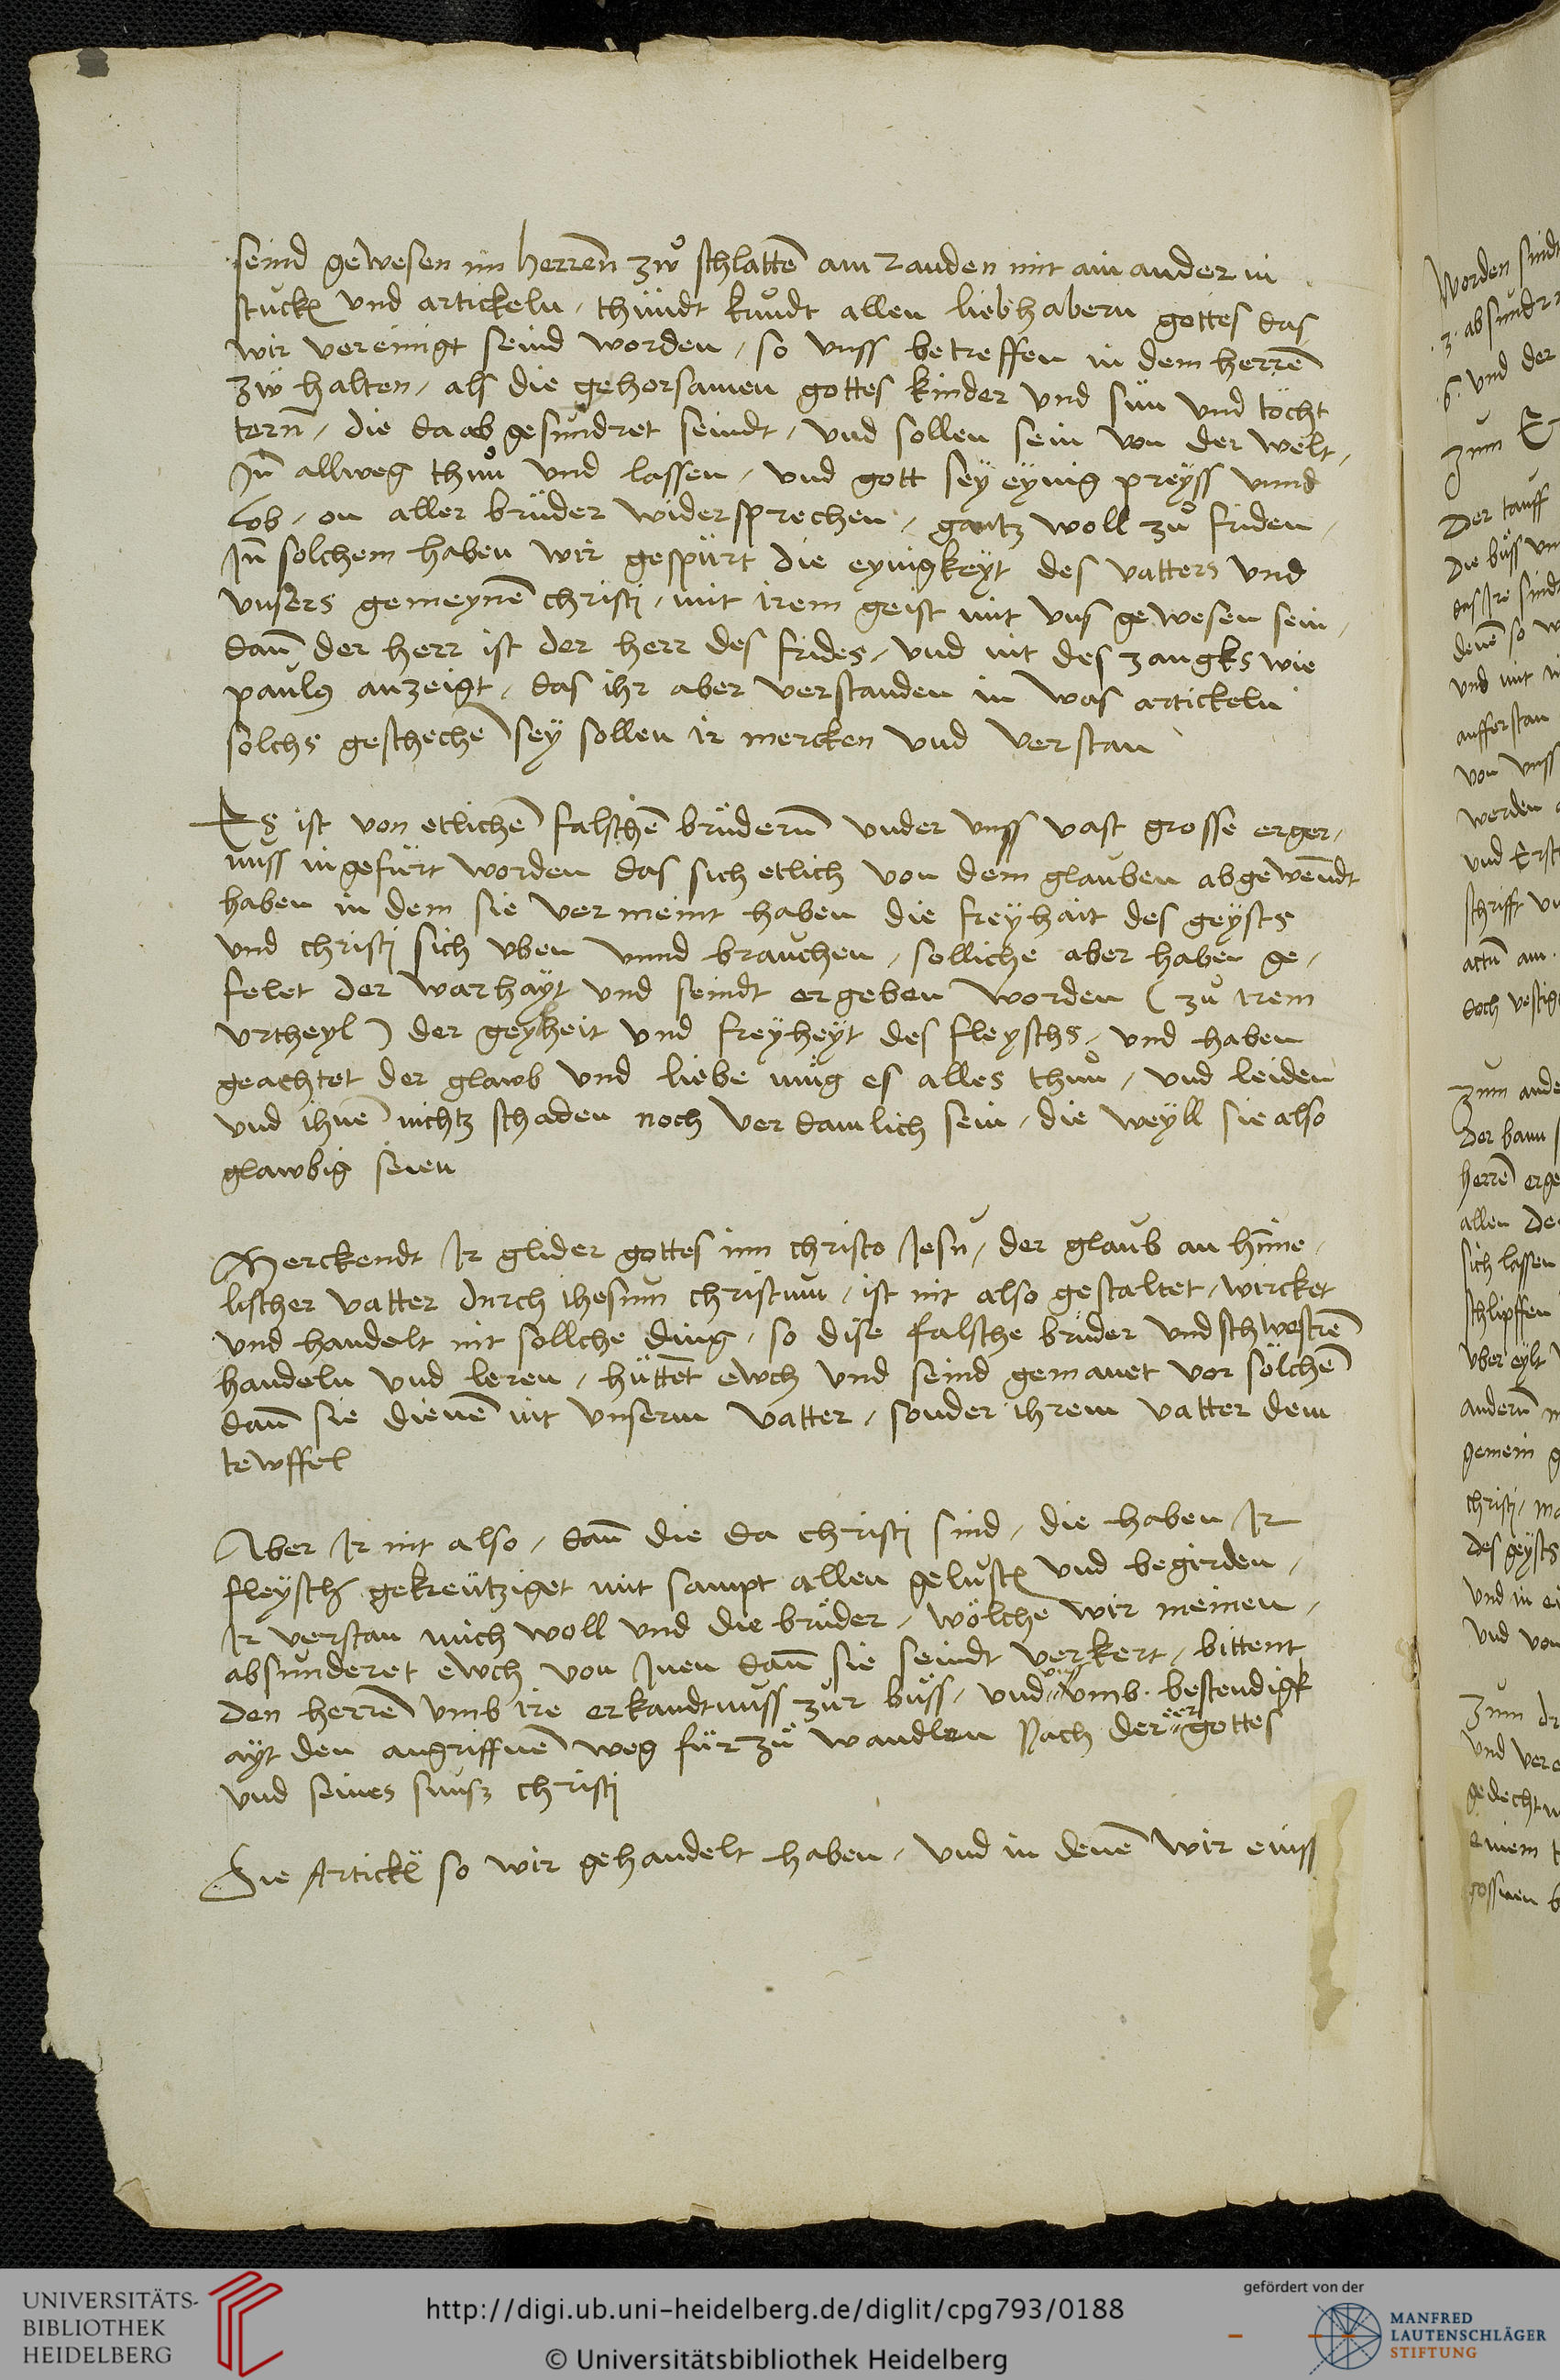 seind gewesen im herrenn zwͦ schlattē am randen mit ain ander in
stucken und artickeln / thündt kundt allen liebhabern gottes das
wir vereinigt seind worden / so vnss betreffen in dem herrē
zw halten / als die gehorsamen gottes kinder vnd sün vnd töcht
tern̄ / die da abgesundret seindt / vnd sollen sein von der welt /
In̄ allweg thun vnd lassen / vnd gott sey eynig preyss vnnd
lob / on aller brüder widersprechen / gantz woll zů friden /
In̄ solchem haben wir gespürt die eynigkeyt des vatters vnd
vnsers gemeynē christj / mit irem geist mit vns gewesen sein /
dan̄ der herr ist der herr des frides / vnd nit des zangks wie
paulus anzeigt / das ihr aber verstanden in was artickeln
solchs geschechē sey sollen ir mercken vnd verstan
Es ist von etlichē falschē brüdern̄ vnder vnss vast grosse erger /
nuss ingefürt worden das sich etlich von dem glauben abgewendt
haben in dem sie vermeint haben die freyhait des geysts
vnd christj sich vben vnnd brauchen / solliche aber haben ge /
felet der warhayt vnd seindt ergeben worden ( zů irem
vrtheyl ) der geylheit vnd freyheyt des fleyschs / vnd haben
geachtet der glawb vnd liebe müg es alles thun / vnd leiden
vnd ihnē nichtz schaden noch verdamlich sein / die weyll sie also
glawbig seien
Merckendt Ir glider gottes inn christo Jesu / der glaub an him̄e /
lischer vatter durch ihesum christum / ist nit also gestaltet / wircket
vnd handelt nit sollche ding / so dise falsche brüder vnd schwestrē
handeln vnd leren / hüttet ewch vnd seind gemanet vor sölchē
dan̄ sie dienē nit vnserm vatter / sonder ihrem vatter dem
tewffel
Aber Ir nit also / dan̄ die da christj sind / die haben Ir
fleysch gekreütziget mit sampt allen gelusten vnd begirden /
Ir verstan mich woll vnd die brüder / wölche wir meinen /
absunderet ewch von Inen dan̄ sie seindt verkert / bittent
den herrē vmb ire erkandtnuss zur büss / vnd vnss vmb bestendigk
ayt den angriffnē weg für zů wandlen Nach der eer gottes
vnd seines sunss christj
Die Artickel so wir gehandelt haben / vnd in denē wir einss
worden sindt
zum
Der tauff
Die büss
das Ire sindt
denē so
vnd mit
aufferstan
von vnss
werden
vnd Erst
schrifft
doch
zum ande
Der bann
herrē erge
allen
sich lassen
schlipffen
vber eylt
andern̄
gemein
christj /
des geysts
vnd in
vnd von
zum
vnd
einem
UNIVERSITÄTS-
BIBLIOTHEK
HEIDELBERG
http://digi.ub.uni-heidelberg.de/diglit/cpg793/0188
© Universitätsbibliothek Heidelberg
gefördert von der
MANFRED
LAUTENSCHLÄGER
STIFTUNG